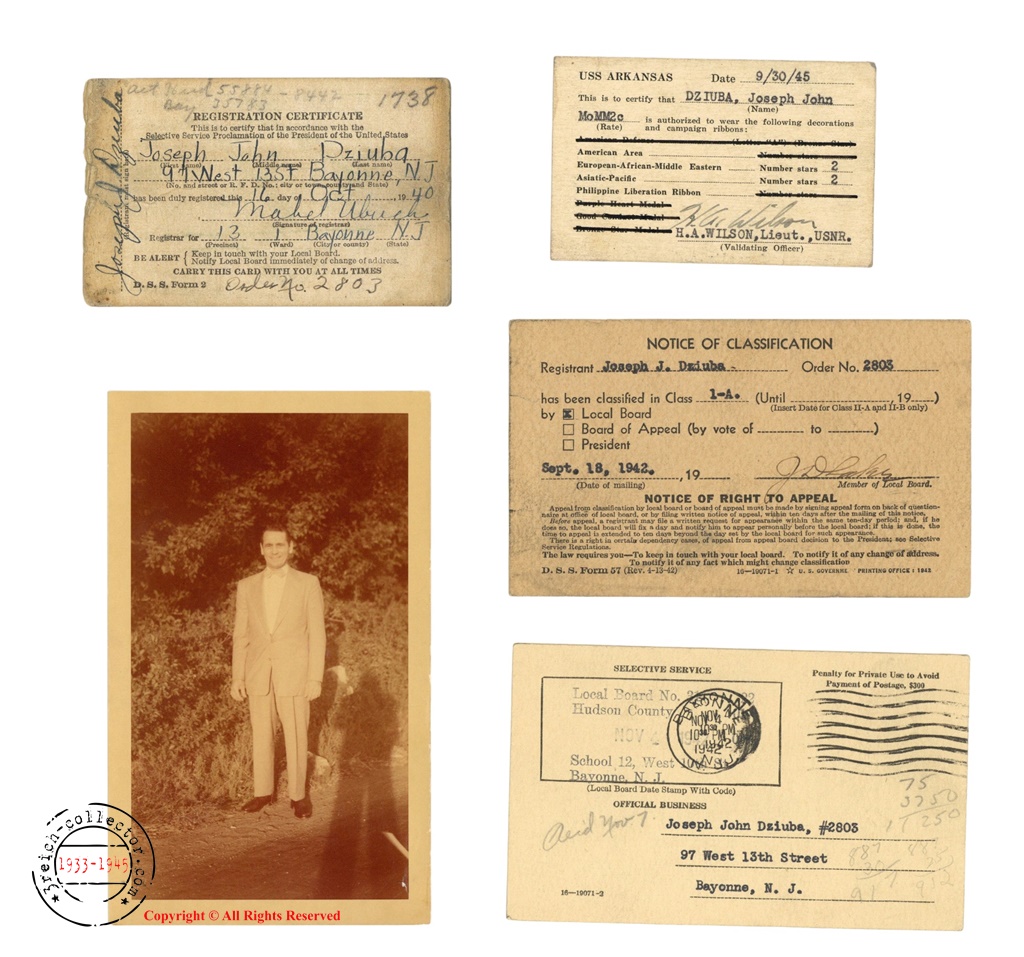 Act Hud 55884 - 8442
Bay 35783
1738
REGISTRATION CERTIFICATE
This is to certify that in accordance with the
Selective Service Proclamation of the President of the United States
Joseph John Dziuba
(First name) (Middle name) (Last name)
97 West 13St Bayonne, N.J
(No. and street or R. F. D. No.; city or town, county and State)
has been duly registered this 16 day of Oct , 1940
(Signature of registrar)
Registrar for 13 1 Bayonne N.J
(Precinct) (Ward) (City or county) (State)
BE ALERT { Keep in touch with your Local Board.
Notify Local Board immediately of change of address.
CARRY THIS CARD WITH YOU AT ALL TIMES
D. S. S. Form 2 Order No. 2803
Joseph J Dziuba
USS ARKANSAS Date 9/30/45
This is to certify that DZIUBA, Joseph John
(Name)
MoMM2c is authorized to wear the following decorations
(Rate) and campaign ribbons:
American Defense (Letter "A") (Bronze Star)
American Area Number stars
European-African-Middle Eastern Number stars 2
Asiatic-Pacific Number stars 2
Philippine Liberation Ribbon Number stars
Purple Heart Medal
Good Conduct Medal
Bronze Star Medal
H.A. Wilson
H.A.WILSON,Lieut.,USNR.
(Validating Officer)
NOTICE OF CLASSIFICATION
Registrant Joseph J. Dziuba- Order No. 2803
has been classified in Class 1-A. (Until , 19 )
(Insert Date for Class II-A and II-B only)
by ☒ Local Board
☐ Board of Appeal (by vote of to )
☐ President
Sept. 18, 1942. , 19
(Date of mailing) Member of Local Board.
NOTICE OF RIGHT TO APPEAL
Appeal from classification by local board or board of appeal must be made by signing appeal form on back of question-
naire at office of local board, or by filing written notice of appeal, within ten days after the mailing of this notice.
Before appeal, a registrant may file a written request for appearance within the same ten-day period; and, if he
does so, the local board will fix a day and notify him to appear personally before the local board; if this is done, the
time to appeal is extended to ten days beyond the day set by the local board for such appearance.
There is a right in certain dependency cases, of appeal from appeal board decision to the President; see Selective
Service Regulations.
The law requires you—To keep in touch with your local board. To notify it of any change of address.
To notify it of any fact which might change classification
D. S. S. Form 57 (Rev. 4-13-42) 16—19071-1 ☆ U. S. GOVERNM. PRINTING OFFICE : 1942
SELECTIVE SERVICE
Penalty for Private Use to Avoid
Payment of Postage, $300
Local Board No.
Hudson County
NOV
School 12, West
Bayonne, N. J.
BAYONNE
NOV 4
10 30 PM
1942
N.J.
(Local Board Date Stamp With Code)
OFFICIAL BUSINESS
Nov 7.
75
3750
11250
Joseph John Dziuba, #2803
97 West 13th Street
Bayonne, N. J.
16—19071-2
3reich-collector.com
1933-1945
Copyright © All Rights Reserved